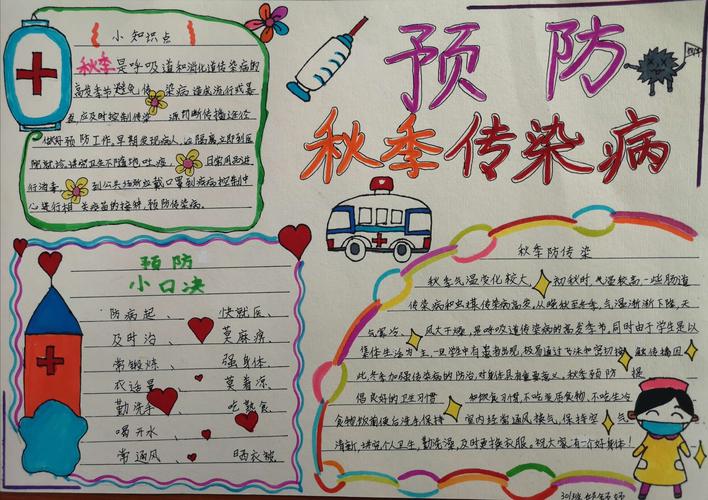 预防
秋季传染病
小知识点
秋季是呼吸道和消化道传染病的
高发季节避免传染病造成流行或蔓
应及时控制传染源切断传播途径
做好预防工作,早期发现病人,立即到医
院就诊,讲究卫生不随地吐痰,日常用品进
行消毒,到公共场所应戴口罩到疾病控制中
心进行相关疫苗的接种,预防传染病。
预防
小口决
防病起、快就医、
及时治、莫麻痹、
常锻炼、强身体、
衣适量、莫着凉、
勤洗手、吃熟食、
喝开水、
常通风、晒衣被、
秋季防传染
秋季气温变化较大,初秋时,气温较高,一些肠道
传染病和虫媒传染病高发,从晚秋至冬季,气温渐渐下降,天
气寒冷、风大干燥,是呼吸道传染病的高发季节,同时由于学生是以
集体生活为主,一旦学生中有患者出现,极易通过飞沫和密切接触传播,因
此,冬季加强传染病的防治,对身体具有重要意义,秋季预防 提
倡良好的卫生习惯 如饮食习惯,不吃变质食物,不吃生冷
食物,饮前便后洗手,保持 室内经常通风换气,保持空气
清新,讲究个人卫生,勤洗澡,及时更换衣服。祝大家有一个好身体!